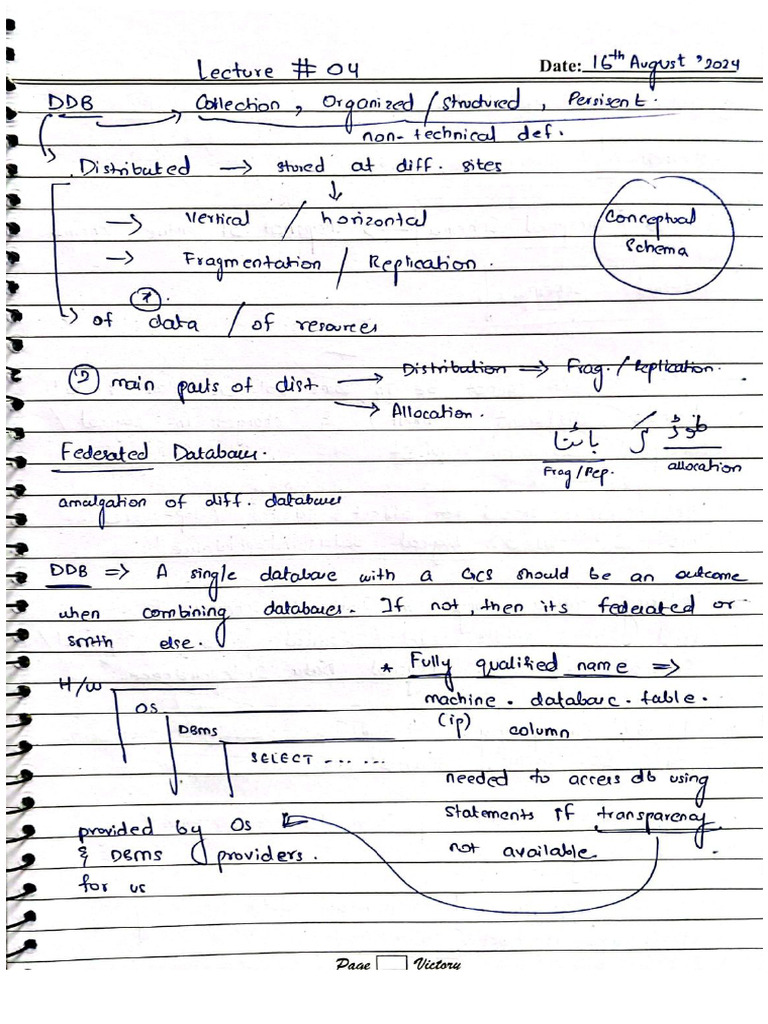 Lecture # 04
Date: 16th August '2024
DDB → Collection, Organized / structured, Persisent.
non-technical def.
Distributed → stored at diff. sites
↓
→ Vertical / horizontal
→ Fragmentation / Replication.
Conceptual
Schema
↳ of data / of resources
② main parts of dist → Distribution ⇒ Frag. / Replication.
→ Allocation.
توڑ کر بانٹنا
Frag/Rep. allocation
Federated Databases.
amalgation of diff. databases
DDB ⇒ A single database with a GCS should be an outcome
when combining databases. If not, then its federated or
smth else.
* Fully qualified name ⇒
machine . database . table .
(ip) column
H/w
OS
DBMS
SELECT ... ...
needed to access db using
statements if transparency
not available.
provided by OS
& DBMS providers.
for us
Page Victory